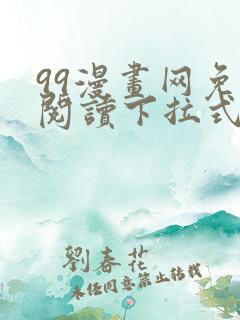 99漫畫网免
閱讀下拉式
劉春花
未经同意禁止转载